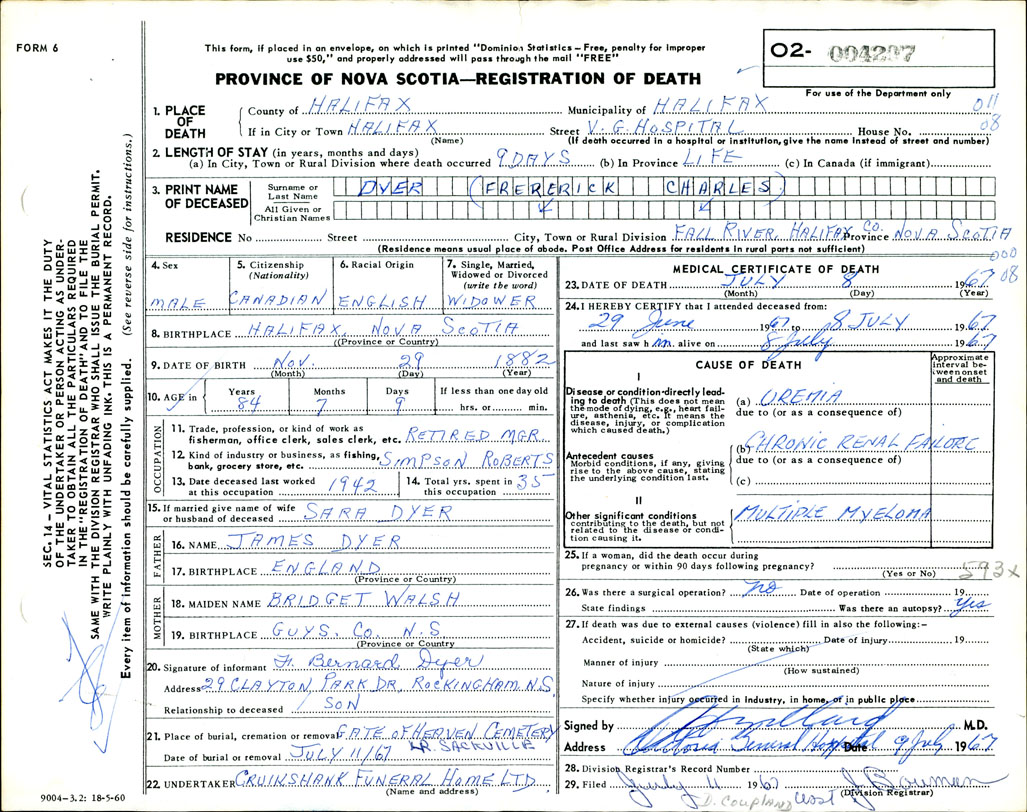 FORM 6
This form, if placed in an envelope, on which is printed "Dominion Statistics – Free, penalty for improper
use $50," and properly addressed will pass through the mail "FREE"
PROVINCE OF NOVA SCOTIA—REGISTRATION OF DEATH
O2- 004297
For use of the Department only
SEC. 14 – VITAL STATISTICS ACT MAKES IT THE DUTY
OF THE UNDERTAKER OR PERSON ACTING AS UNDER-
TAKER TO OBTAIN ALL THE PARTICULARS REQUIRED
IN THE "REGISTRATION OF DEATH" AND TO FILE THE
SAME WITH THE DIVISION REGISTRAR WHO SHALL ISSUE THE BURIAL PERMIT.
WRITE PLAINLY WITH UNFADING INK. THIS IS A PERMANENT RECORD.
Every item of information should be carefully supplied. (See reverse side for instructions.)
1. PLACE OF DEATH
County of HALIFAX Municipality of HALIFAX 011
If in City or Town HALIFAX Street V. G. HOSPITAL House No. 08
(Name) (If death occurred in a hospital or institution, give the name instead of street and number)
2. LENGTH OF STAY (in years, months and days)
(a) In City, Town or Rural Division where death occurred 9 DAYS (b) In Province LIFE (c) In Canada (if immigrant)
3. PRINT NAME OF DECEASED
Surname or Last Name DYER (FRERERICK CHARLES)
All Given or Christian Names
RESIDENCE No Street City, Town or Rural Division FALL RIVER, HALIFAX CO. Province NOVA SCOTIA
(Residence means usual place of abode. Post Office Address for residents in rural parts not sufficient)
000
08
4. Sex MALE
5. Citizenship (Nationality) CANADIAN
6. Racial Origin ENGLISH
7. Single, Married, Widowed or Divorced (write the word) WIDOWER
8. BIRTHPLACE HALIFAX, NOVA SCOTIA
(Province or Country)
9. DATE OF BIRTH NOV. 29 1882
(Month) (Day) (Year)
10. AGE in Years 84 Months 7 Days 9 If less than one day old
hrs. or min.
OCCUPATION
11. Trade, profession, or kind of work as
fisherman, office clerk, sales clerk, etc. RETIRED MGR.
12. Kind of industry or business, as fishing,
bank, grocery store, etc. SIMPSON ROBERTS
13. Date deceased last worked
at this occupation 1942
14. Total yrs. spent in
this occupation 35
15. If married give name of wife
or husband of deceased SARA DYER
FATHER
16. NAME JAMES DYER
17. BIRTHPLACE ENGLAND
(Province or Country)
MOTHER
18. MAIDEN NAME BRIDGET WALSH
19. BIRTHPLACE GUYS. CO. N.S
(Province or Country)
20. Signature of informant F. Bernard Dyer
Address 29 CLAYTON PARK DR, ROCKINGHAM. N.S.
Relationship to deceased SON
21. Place of burial, cremation or removal GATE OF HEAVEN CEMETERY
LR. SACKVILLE
Date of burial or removal JULY 11/67
22. UNDERTAKER CRUIKSHANK FUNERAL HOME LTD.
(Name and address)
9004–3.2: 18-5-60
MEDICAL CERTIFICATE OF DEATH
23. DATE OF DEATH JULY 8 1967
(Month) (Day) (Year)
24. I HEREBY CERTIFY that I attended deceased from:
29 June 1967 to 8 JULY 1967
and last saw h im alive on 8 July 1967
CAUSE OF DEATH
Approximate interval between onset and death
I
Disease or condition directly lead-
ing to death (This does not mean
the mode of dying, e.g., heart fail-
ure, asthenia, etc. It means the
disease, injury, or complication
which caused death.)
(a) UREMIA
due to (or as a consequence of)
(b) CHRONIC RENAL FAILURE
Antecedent causes
Morbid conditions, if any, giving
rise to the above cause, stating
the underlying condition last.
due to (or as a consequence of)
(c)
II
Other significant conditions
contributing to the death, but not
related to the disease or condi-
tion causing it.
MULTIPLE MYELOMA
25. If a woman, did the death occur during
pregnancy or within 90 days following pregnancy?
(Yes or No) 593x
26. Was there a surgical operation? no Date of operation 19
State findings Was there an autopsy? Yes
27. If death was due to external causes (violence) fill in also the following:–
Accident, suicide or homicide? Date of injury 19
(State which)
Manner of injury
(How sustained)
Nature of injury
Specify whether injury occurred in industry, in home, or in public place
Signed by M.D.
Address Victoria General Hospital Date 9 July 1967
28. Division Registrar's Record Number
29. Filed July 11 1967 J. Bowman
(Division Registrar)
D. COUPLAND